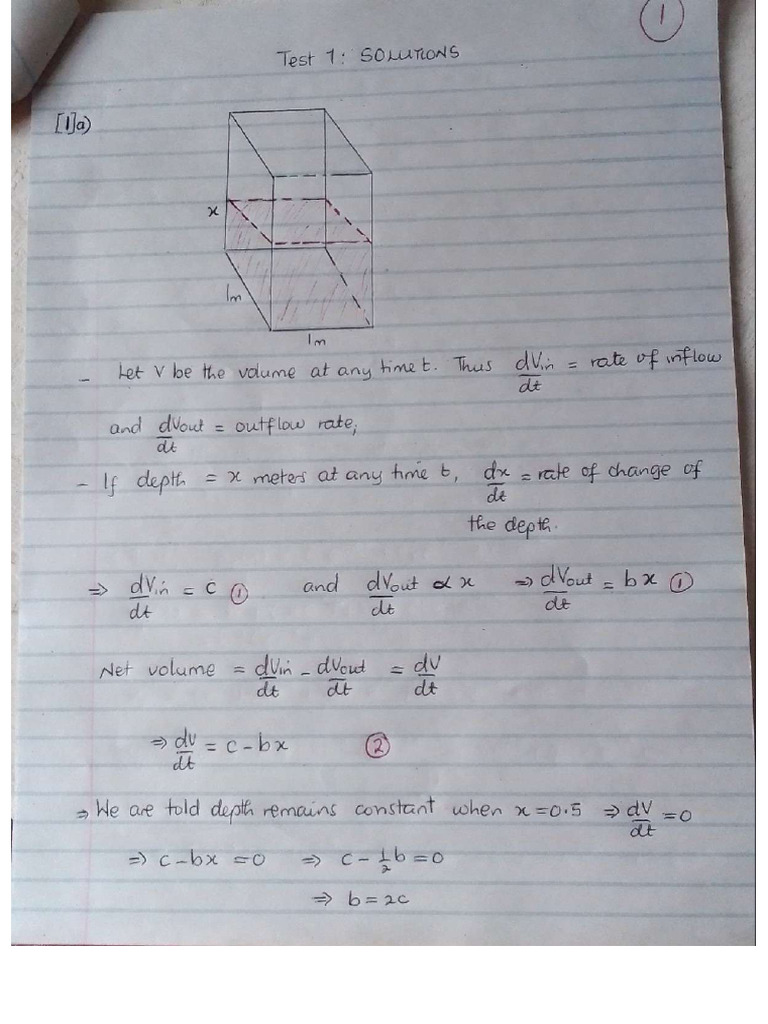 1
Test 1: SOLUTIONS
[1]a)
x
1m
1m
- Let V be the volume at any time t. Thus dVin/dt = rate of inflow
and dVout/dt = outflow rate;
- If depth = x meters at any time t, dx/dt = rate of change of
the depth.
⇒ dVin/dt = c ① and dVout/dt ∝ x ⇒ dVout/dt = bx ①
Net volume = dVin/dt - dVout/dt = dV/dt
⇒ dV/dt = c - bx ②
⇒ We are told depth remains constant when x = 0.5 ⇒ dV/dt = 0
⇒ c - bx = 0 ⇒ c - 1/2 b = 0
⇒ b = 2c